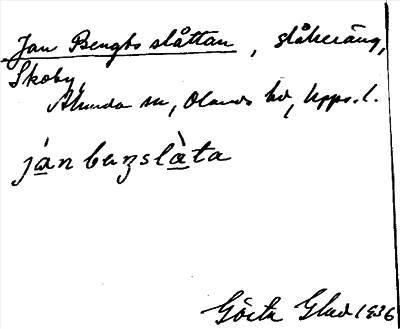 Jan Bengts slåttan, slåtteräng,
Skoby,
Alunda sn, Olands hd, Upps. l.
ján buŋslàta
Gösta Glad 1936